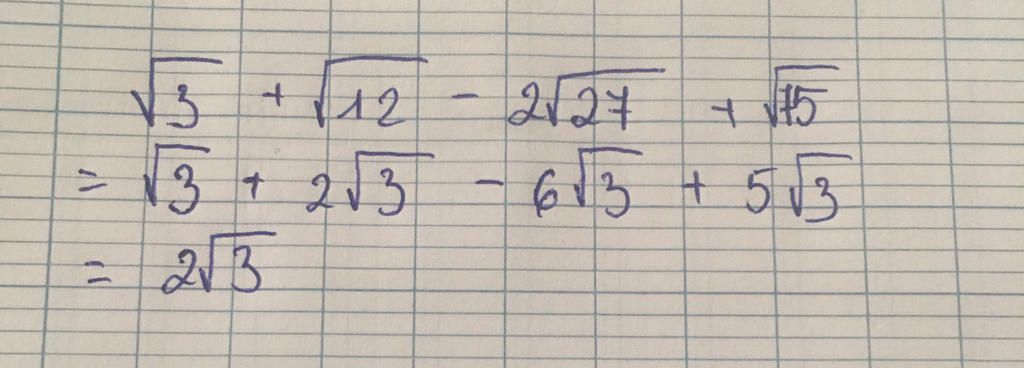 √3 + √12 - 2√27 + √75
= √3 + 2√3 - 6√3 + 5√3
= 2√3